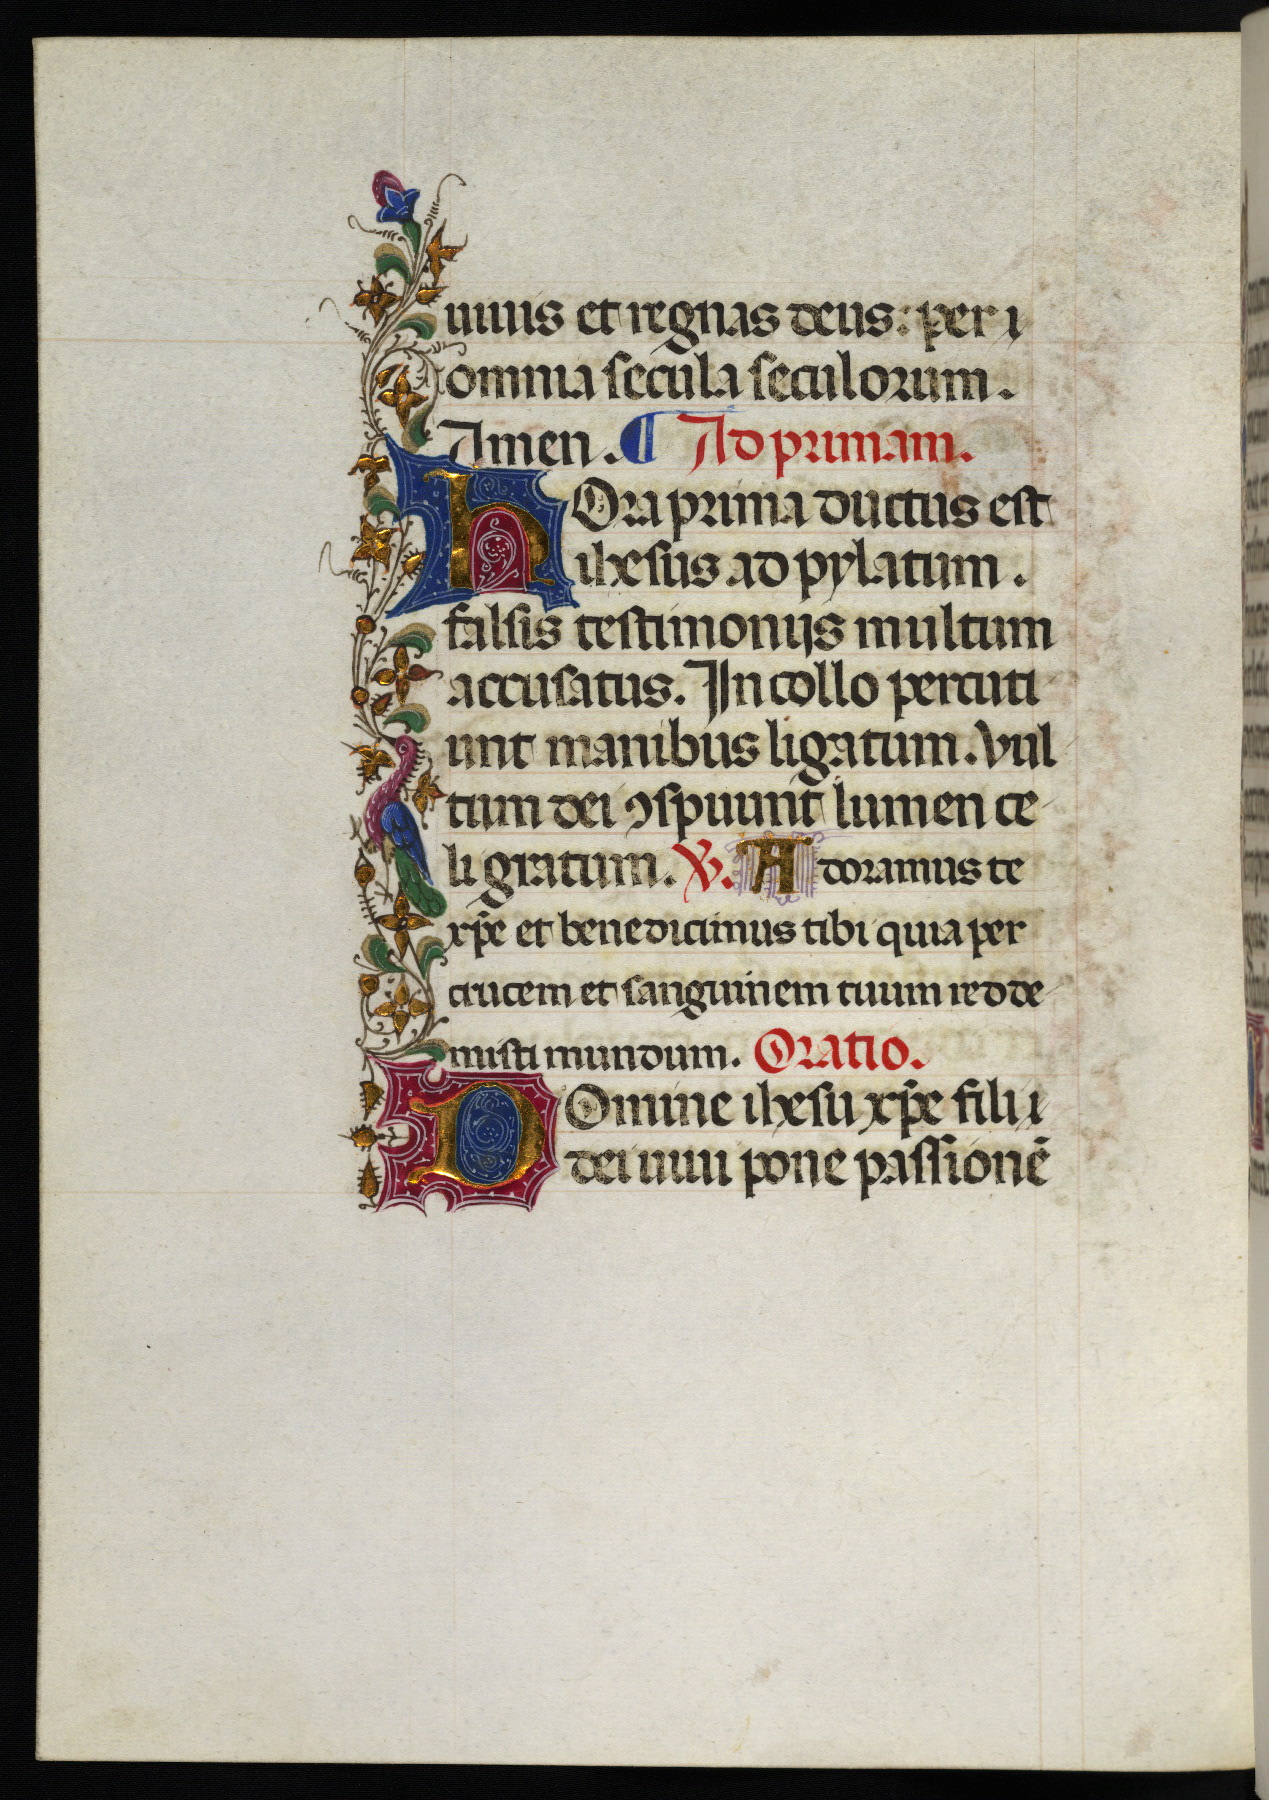 uiuis et regnas deus: per ı
omnia secula seculorum.
Amen. ¶ Ad primam.
hOra prima ductus est
ihesus ad pylatum.
falsis testimonijs multum
accusatus. In collo percuti
unt manibus ligatum. Vul
tum dei ꝯspuunt lumen ce
li gratum. V. Adoramus te
xp̄e et benedicimus tibi quia per
crucem et sanguinem tuum rede
misti mundum. Oratio.
DOmine ihesu xp̄e filii
dei uiui pone passionē